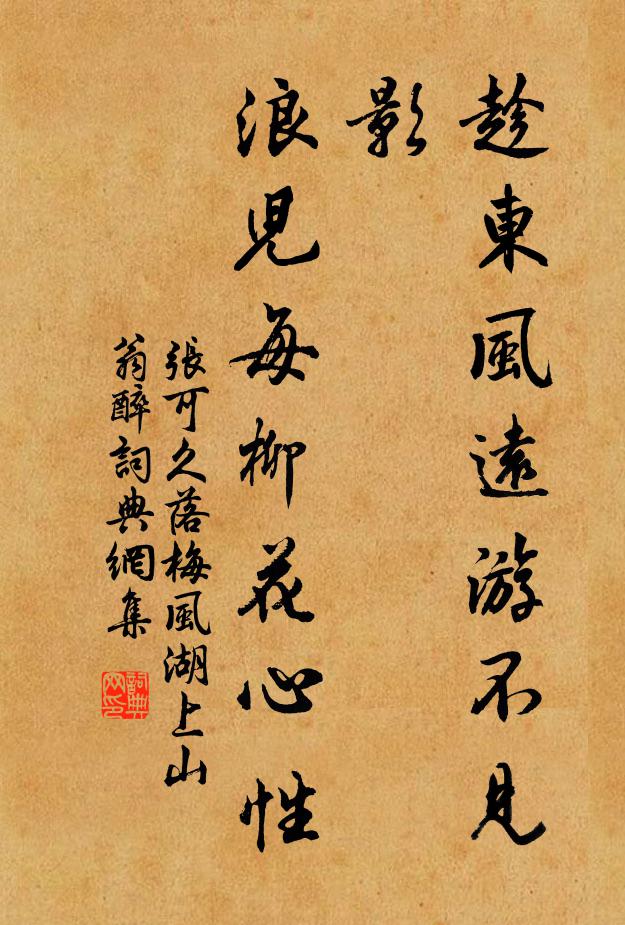 趁東風遠游不見
影
浪兒每柳花心性
張可久落梅風湖上山
翁醉詞典網集
詞典
网印